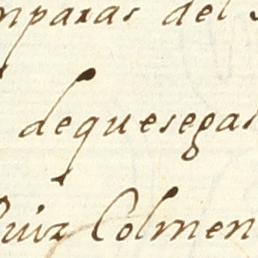 mparas del
dequesegas
Ruiz Colmen